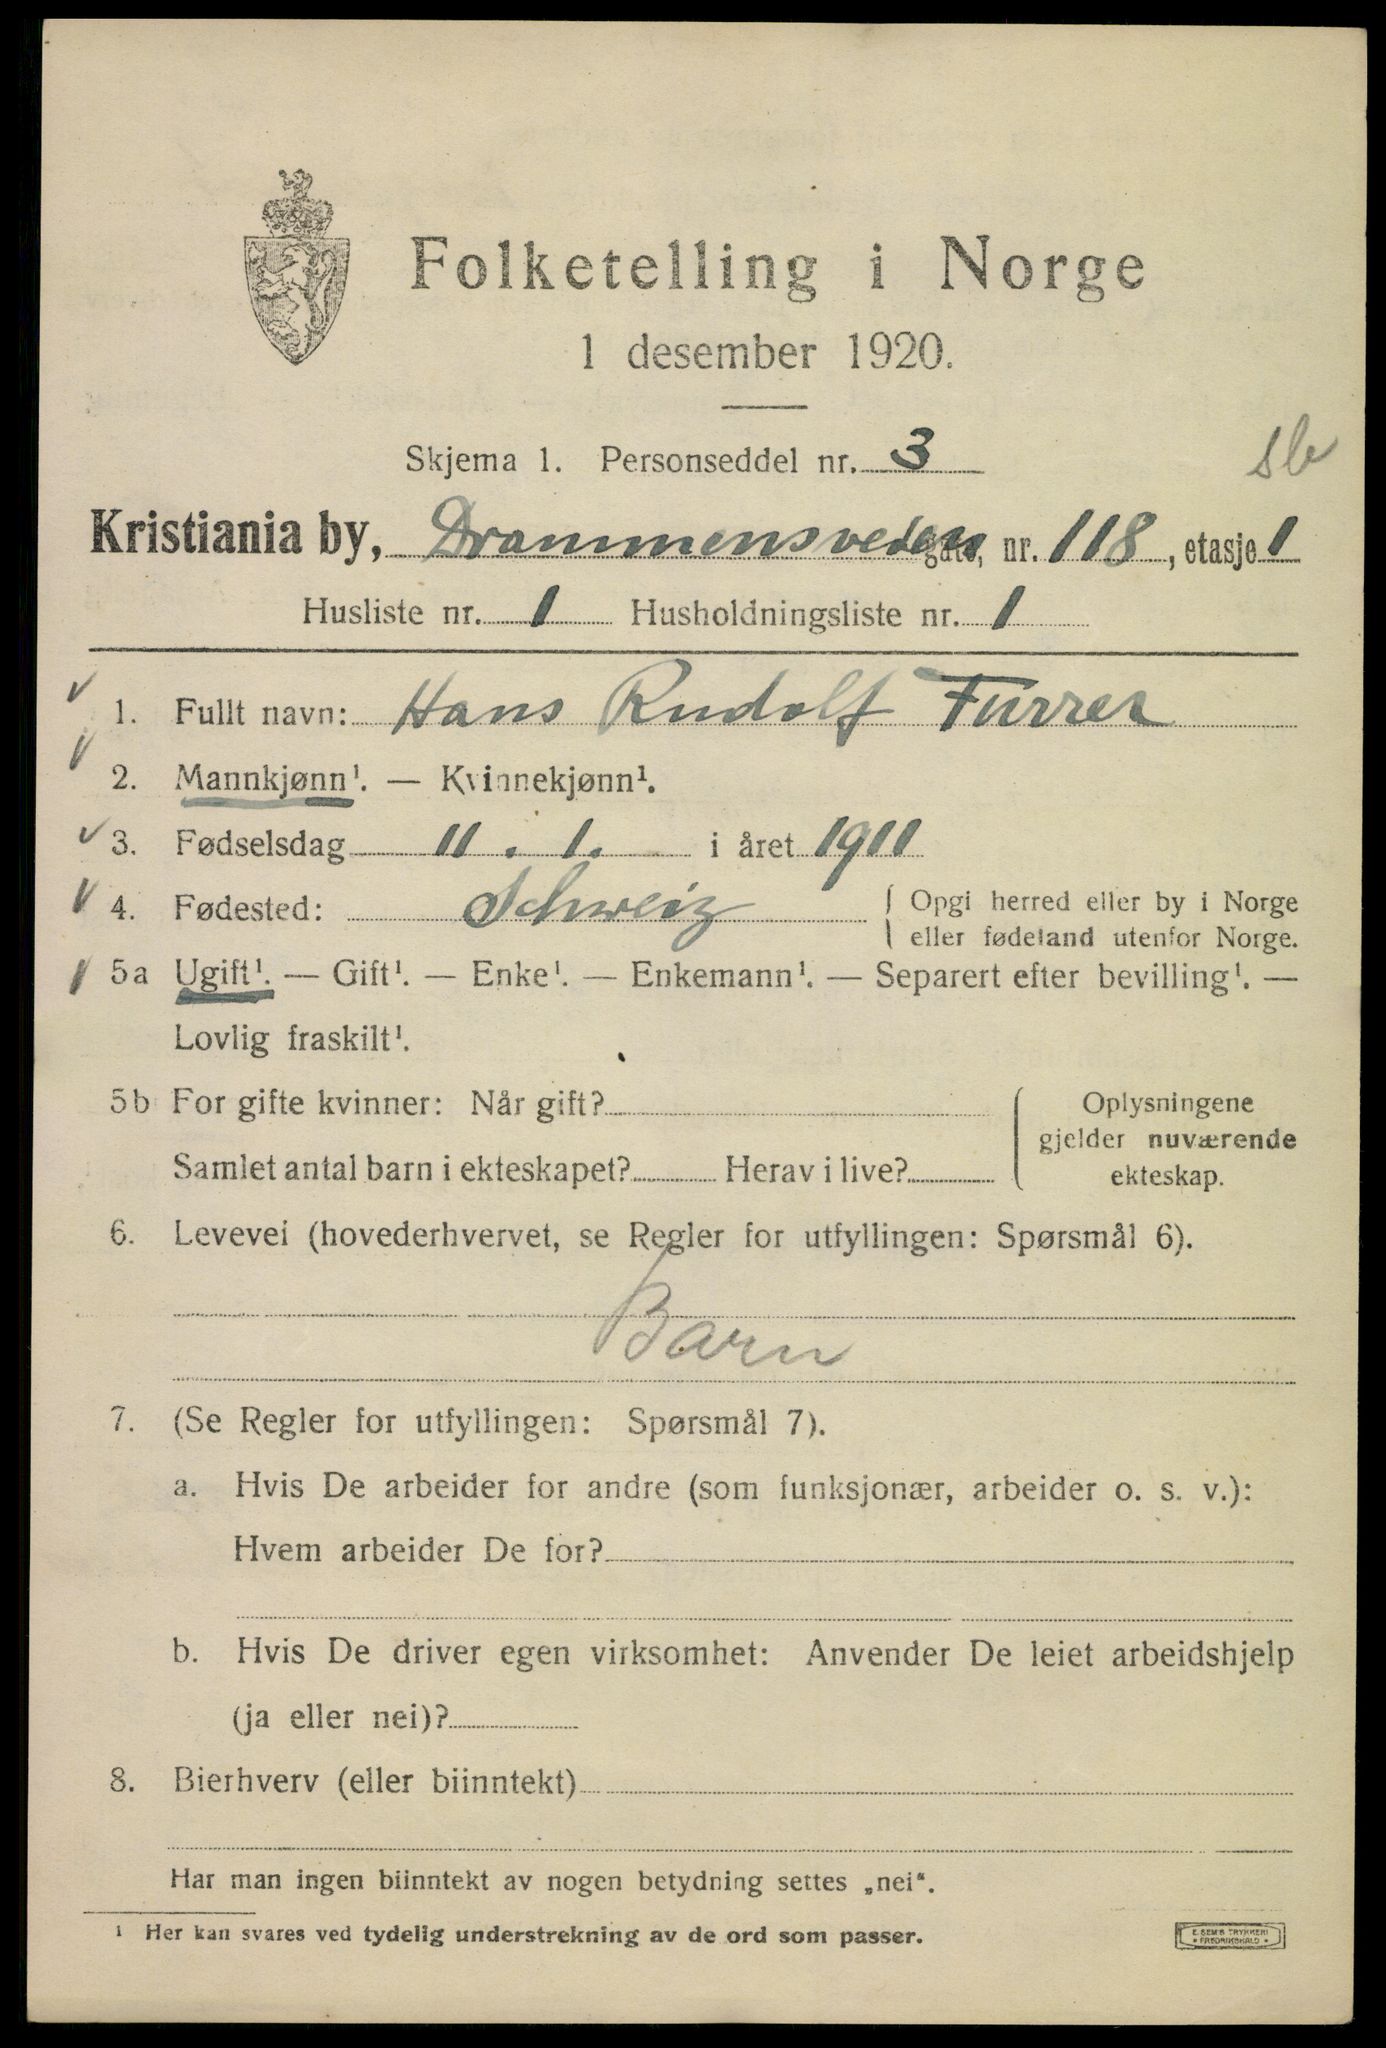 Folketelling i Norge
1 desember 1920.
Skjema 1. Personseddel nr. 3
Kristiania by, Drammensveien gate, nr. 118, etasje 1
Husliste nr. 1 Husholdningsliste nr. 1
1. Fullt navn: Hans Rudolf Furrer
2. Mannkjønn¹. — Kvinnekjønn¹.
3. Fødselsdag 11. 1. i året 1911
4. Fødested: Schweiz { Opgi herred eller by i Norge
eller fødeland utenfor Norge.
5a Ugift¹. — Gift¹. — Enke¹. — Enkemann¹. — Separert efter bevilling¹. —
Lovlig fraskilt¹.
5b For gifte kvinner: Når gift? Oplysningene
gjelder nuværende
Samlet antal barn i ekteskapet? Herav i live? ekteskap.
6. Levevei (hovederhvervet, se Regler for utfyllingen: Spørsmål 6).
Barn
7. (Se Regler for utfyllingen: Spørsmål 7).
a. Hvis De arbeider for andre (som funksjonær, arbeider o. s. v.):
Hvem arbeider De for?
b. Hvis De driver egen virksomhet: Anvender De leiet arbeidshjelp
(ja eller nei)?
8. Bierhverv (eller biinntekt)
Har man ingen biinntekt av nogen betydning settes „nei".
¹ Her kan svares ved tydelig understrekning av de ord som passer.
E. SEM'S TRYKKERI
• FREDRIKSHALD •